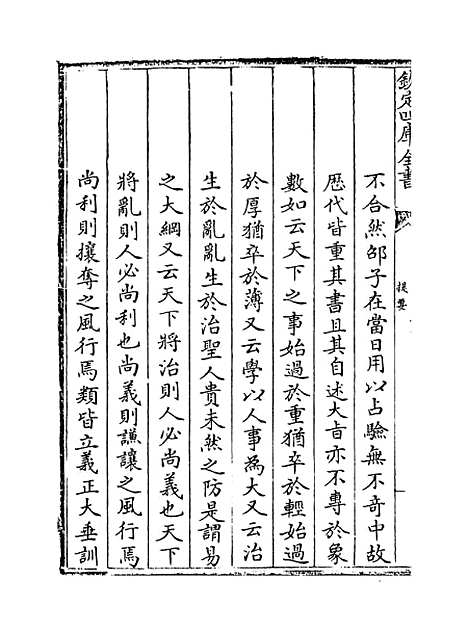 欽定四庫全書
提要
不合然邵子在當日用以占驗無不奇中故
歴代皆重其書且其自述大㫖亦不專於象
數如云天下之事始過於重猶卒於輕始過
於厚猶卒於薄又云學以人事為大又云治
生於亂亂生於治聖人貴未然之防是謂易
之大綱又云天下將治則人必尚義也天下
將亂則人必尚利也尚義則謙讓之風行焉
尚利則攘奪之風行焉類皆立義正大垂訓